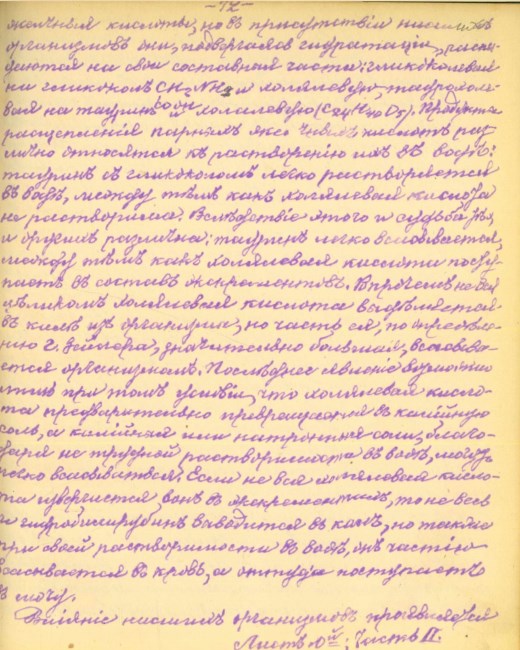 -72-
жолчныя кислоты, но въ присутствіи низшихъ
организмовъ они, подвергаясь гидратаціи, распа-
даются на свои составныя части: гликохолевая
на гликоколъ CH2NH2 и холялевую, таурохоле-
вая на тауринъ COOH холялевую (C24H40O5). Продукты
расщепленія парныхъ желчныхъ кислотъ раз-
лично относятся къ растворенію ихъ въ водѣ:
тауринъ съ гликоколомъ легко растворяются
въ водѣ, между тѣмъ какъ холялевая кислота
не растворима. Вслѣдствіе этого и судьба
и другихъ различна: тауринъ легко всасывается,
между тѣмъ какъ холялевая кислота посту-
паетъ въ составъ экскрементовъ. Впрочемъ не вся
цѣликомъ холялевая кислота выдѣляется
въ калѣ изъ организма, но часть ея, по опредѣле-
нію г. значительно большая, всасыва-
ется организмомъ. Послѣднее явленіе возможно
при томъ условіи, что холялевая кисло-
та предварительно превращается въ калійную
соль, а калійная или натронная соли, благо-
даря не трудной растворимости въ водѣ, могутъ
легко всасываться. Если не вся холялевая кисло-
та извергается вонъ въ экскрементахъ, то не весь
и гидробилирубинъ выводится въ калѣ, но также
при своей растворимости въ водѣ, онъ частію
всасывается въ кровь, а оттуда поступаетъ
въ мочу.
Вліяніе низшихъ организмовъ проявляется
Листъ 10й; Часть II.